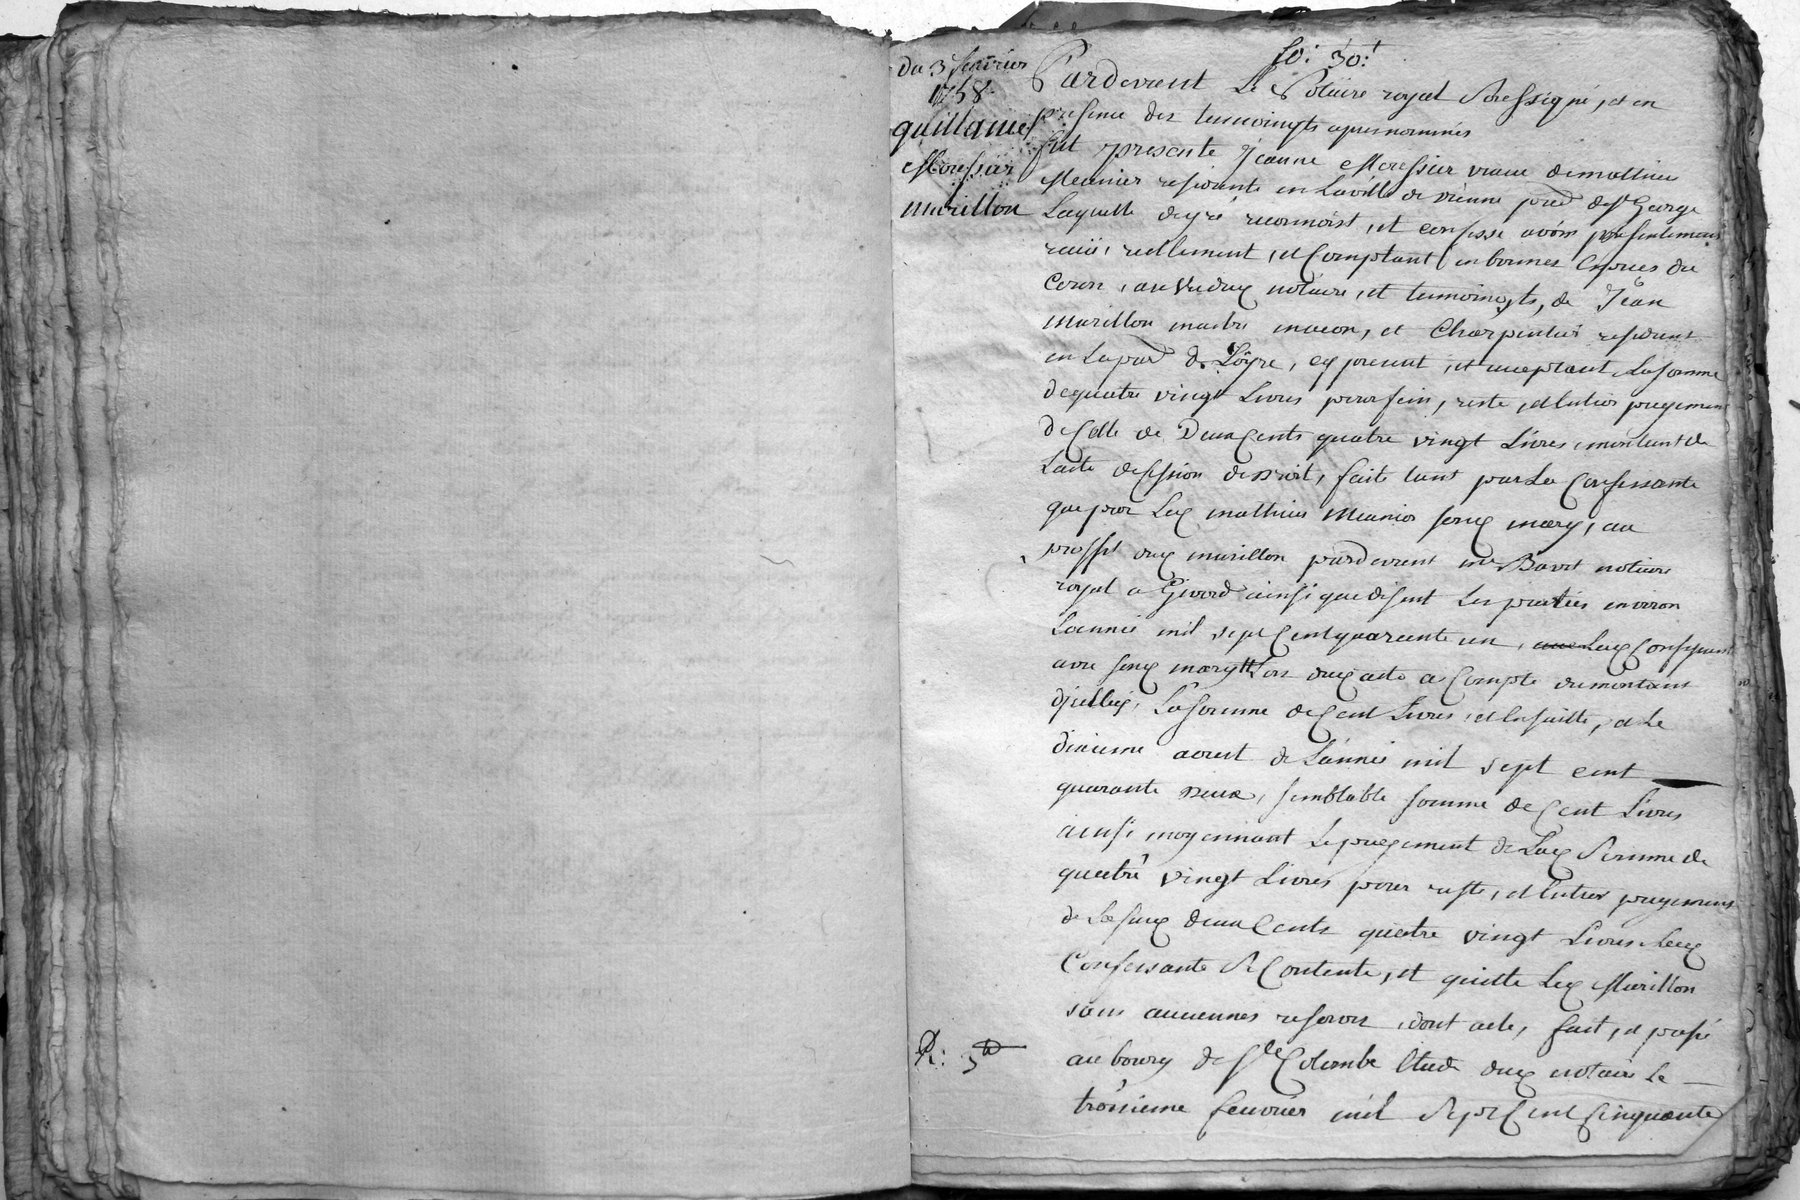 fo: 30:t
Du 3 feuvrier
1758
quittance
Moussier
Murillon
Pardevent Le Notaire royal Soussigné, et en
presence des temoingts apres nommés
fut presente Jeanne Moussier veuve de mathieu
Meunier residante en La ville de vienne par d de St George
Laquelle de gré reconnoist, et confesse avoir presentement
reçu, reellement, et Comptant en bonnes Especes du
Cours, au Vu dux notaire, et temoingts, de Jean
Murillon maitre macon, et Charpentier residant
en La par d de Loyre, cy present, et acceptant La somme
de quatre vingt Livres pour fin, reste, et entier payement
de Celle de Deux Cents quatre vingt Livres, montant de
Lacte de cession de droit, faite tant par La Confessante
que par Lex mathieu Meunier son x mary, au
proffit dux murillon pardevent me Bavet notaire
royal a Givord ainsi que disent Les parties environ
Lannée mil sept Cent quarente un, Lax Confessante
avec son x mary Lors dux acte a Compte du montant
dicelluy, La somme de Cent Livres, et Ensuitte, et Le
dixieme aoust de Lannée mil sept cent
quarante deux, semblable somme de Cent Livres
ainsi moyennant Le payement de Lax Somme de
quatre vingt Livres pour reste, et Entier payement
de Lax Deux Cents quatre vingt Livres Lax
Confessante Se Contente, et quitte Lex Murillon
sans aucunes reserves, dont acte, fait, et passé
au bourg de Ste Colombe Etude dux notaire Le
troisieme feuvrier mil Sept Cent Cinquante
R: 3